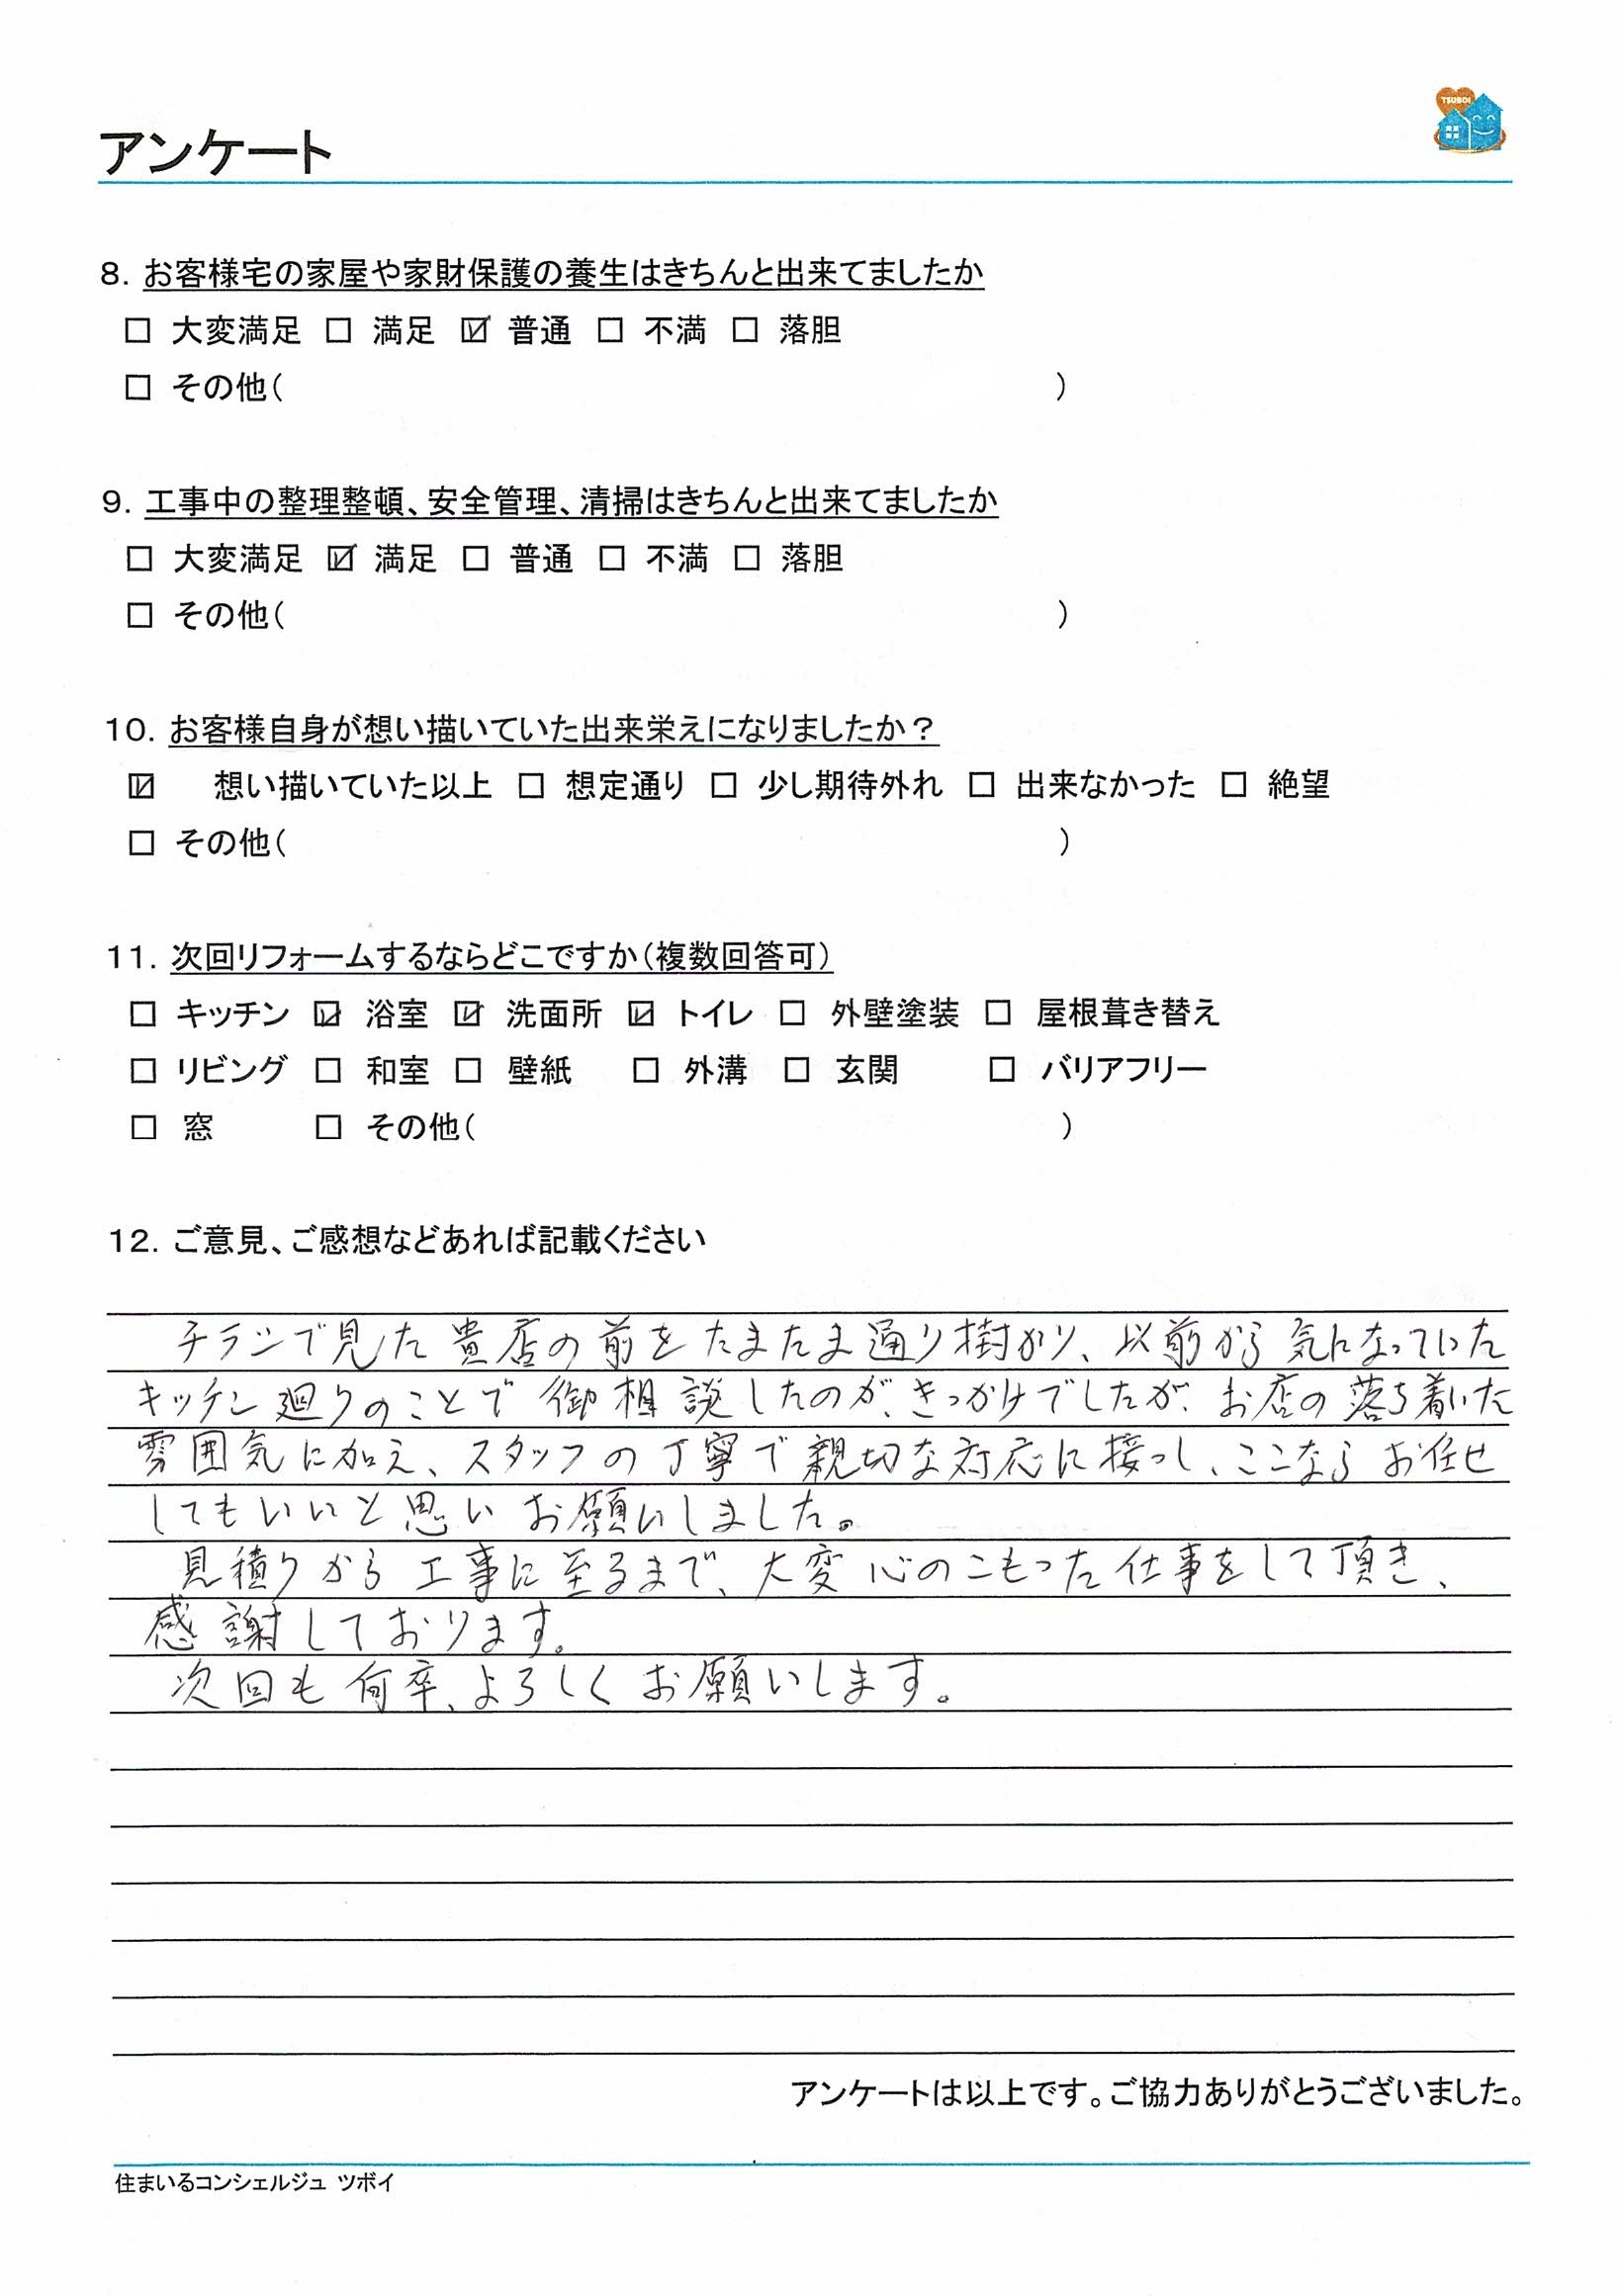 TSUBOI
アンケート
8. お客様宅の家屋や家財保護の養生はきちんと出来てましたか
☐ 大変満足 ☐ 満足 ☑ 普通 ☐ 不満 ☐ 落胆
☐ その他( )
9. 工事中の整理整頓、安全管理、清掃はきちんと出来てましたか
☐ 大変満足 ☑ 満足 ☐ 普通 ☐ 不満 ☐ 落胆
☐ その他( )
10. お客様自身が想い描いていた出来栄えになりましたか?
☑ 想い描いていた以上 ☐ 想定通り ☐ 少し期待外れ ☐ 出来なかった ☐ 絶望
☐ その他( )
11. 次回リフォームするならどこですか(複数回答可)
☐ キッチン ☑ 浴室 ☑ 洗面所 ☑ トイレ ☐ 外壁塗装 ☐ 屋根葺き替え
☐ リビング ☐ 和室 ☐ 壁紙 ☐ 外溝 ☐ 玄関 ☐ バリアフリー
☐ 窓 ☐ その他( )
12. ご意見、ご感想などあれば記載ください
チラシで見た貴店の前をたまたま通り樹かり、以前から気になっていた
キッチン廻りのことで御相談したのが、きっかけでしたが、お店の落ち着いた
雰囲気に加え、スタッフの丁寧で親切な対応に接っし、ここならお任せ
してもいいと思いお願いしました。
見積りから工事に至るまで、大変心のこもった仕事をして頂き、
感謝しております。
次回も何卒、よろしくお願いします。
アンケートは以上です。ご協力ありがとうございました。
住まいるコンシェルジュ ツボイ